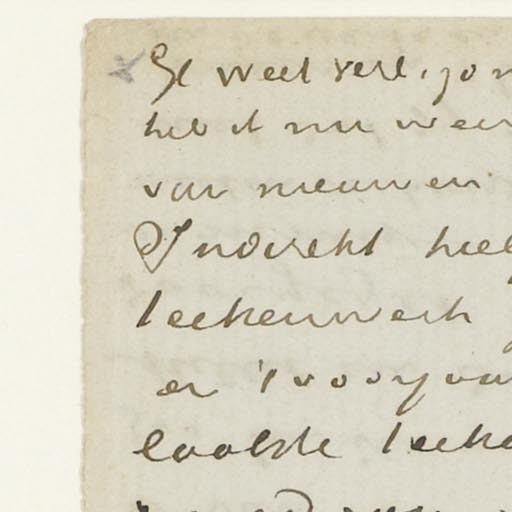 Ge weet verl. jo
heb it nu weer
van nieuw en
Indirekt heel
teekenwerk
er 't voor
laatste teeke